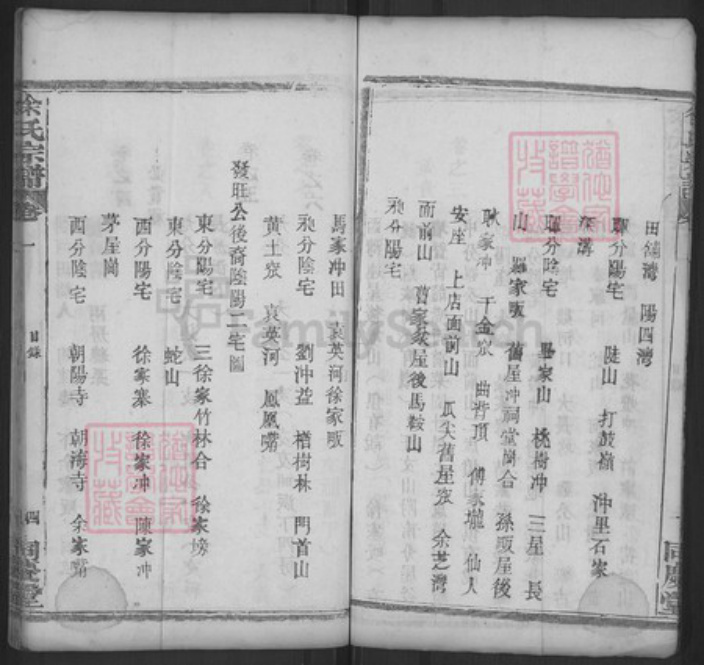 田鋪灣 陽四灣
暉分陽宅 陡山 打鼓嶺 沖里石家
寨溝
暉分陰宅 墨家山 桃樹冲 三星 長
山 羅家畈 舊屋冲祠堂崗合 孫畈屋後
耿家冲 干金窊 曲背頂 傅家壠 仙人
安座 上店面前山 瓜尖舊屋窊 余芝灣
面前山 曹家坂屋後馬鞍山
永分陽宅
馬家冲田 袁英河徐家畈
永分陰宅 劉冲益 榰樹林 門首山
黃土窊 袁英河 鳳凰嘴
發旺公後裔陰陽二宅圖
東分陽宅 三徐家竹林合 徐家塝
東分陰宅 蛇山
西分陽宅 徐家寨 徐家冲 陳家冲
茅屋崗
西分陰宅 朝陽寺 朝海寺 余家嘴
徐氏宗譜 卷一 目錄 四 同慶堂
同慶堂
FamilySearch